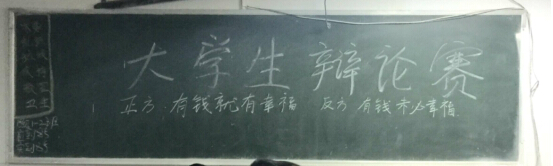 大学生辩论赛
正方 有钱就有幸福 反方 有钱未必幸福